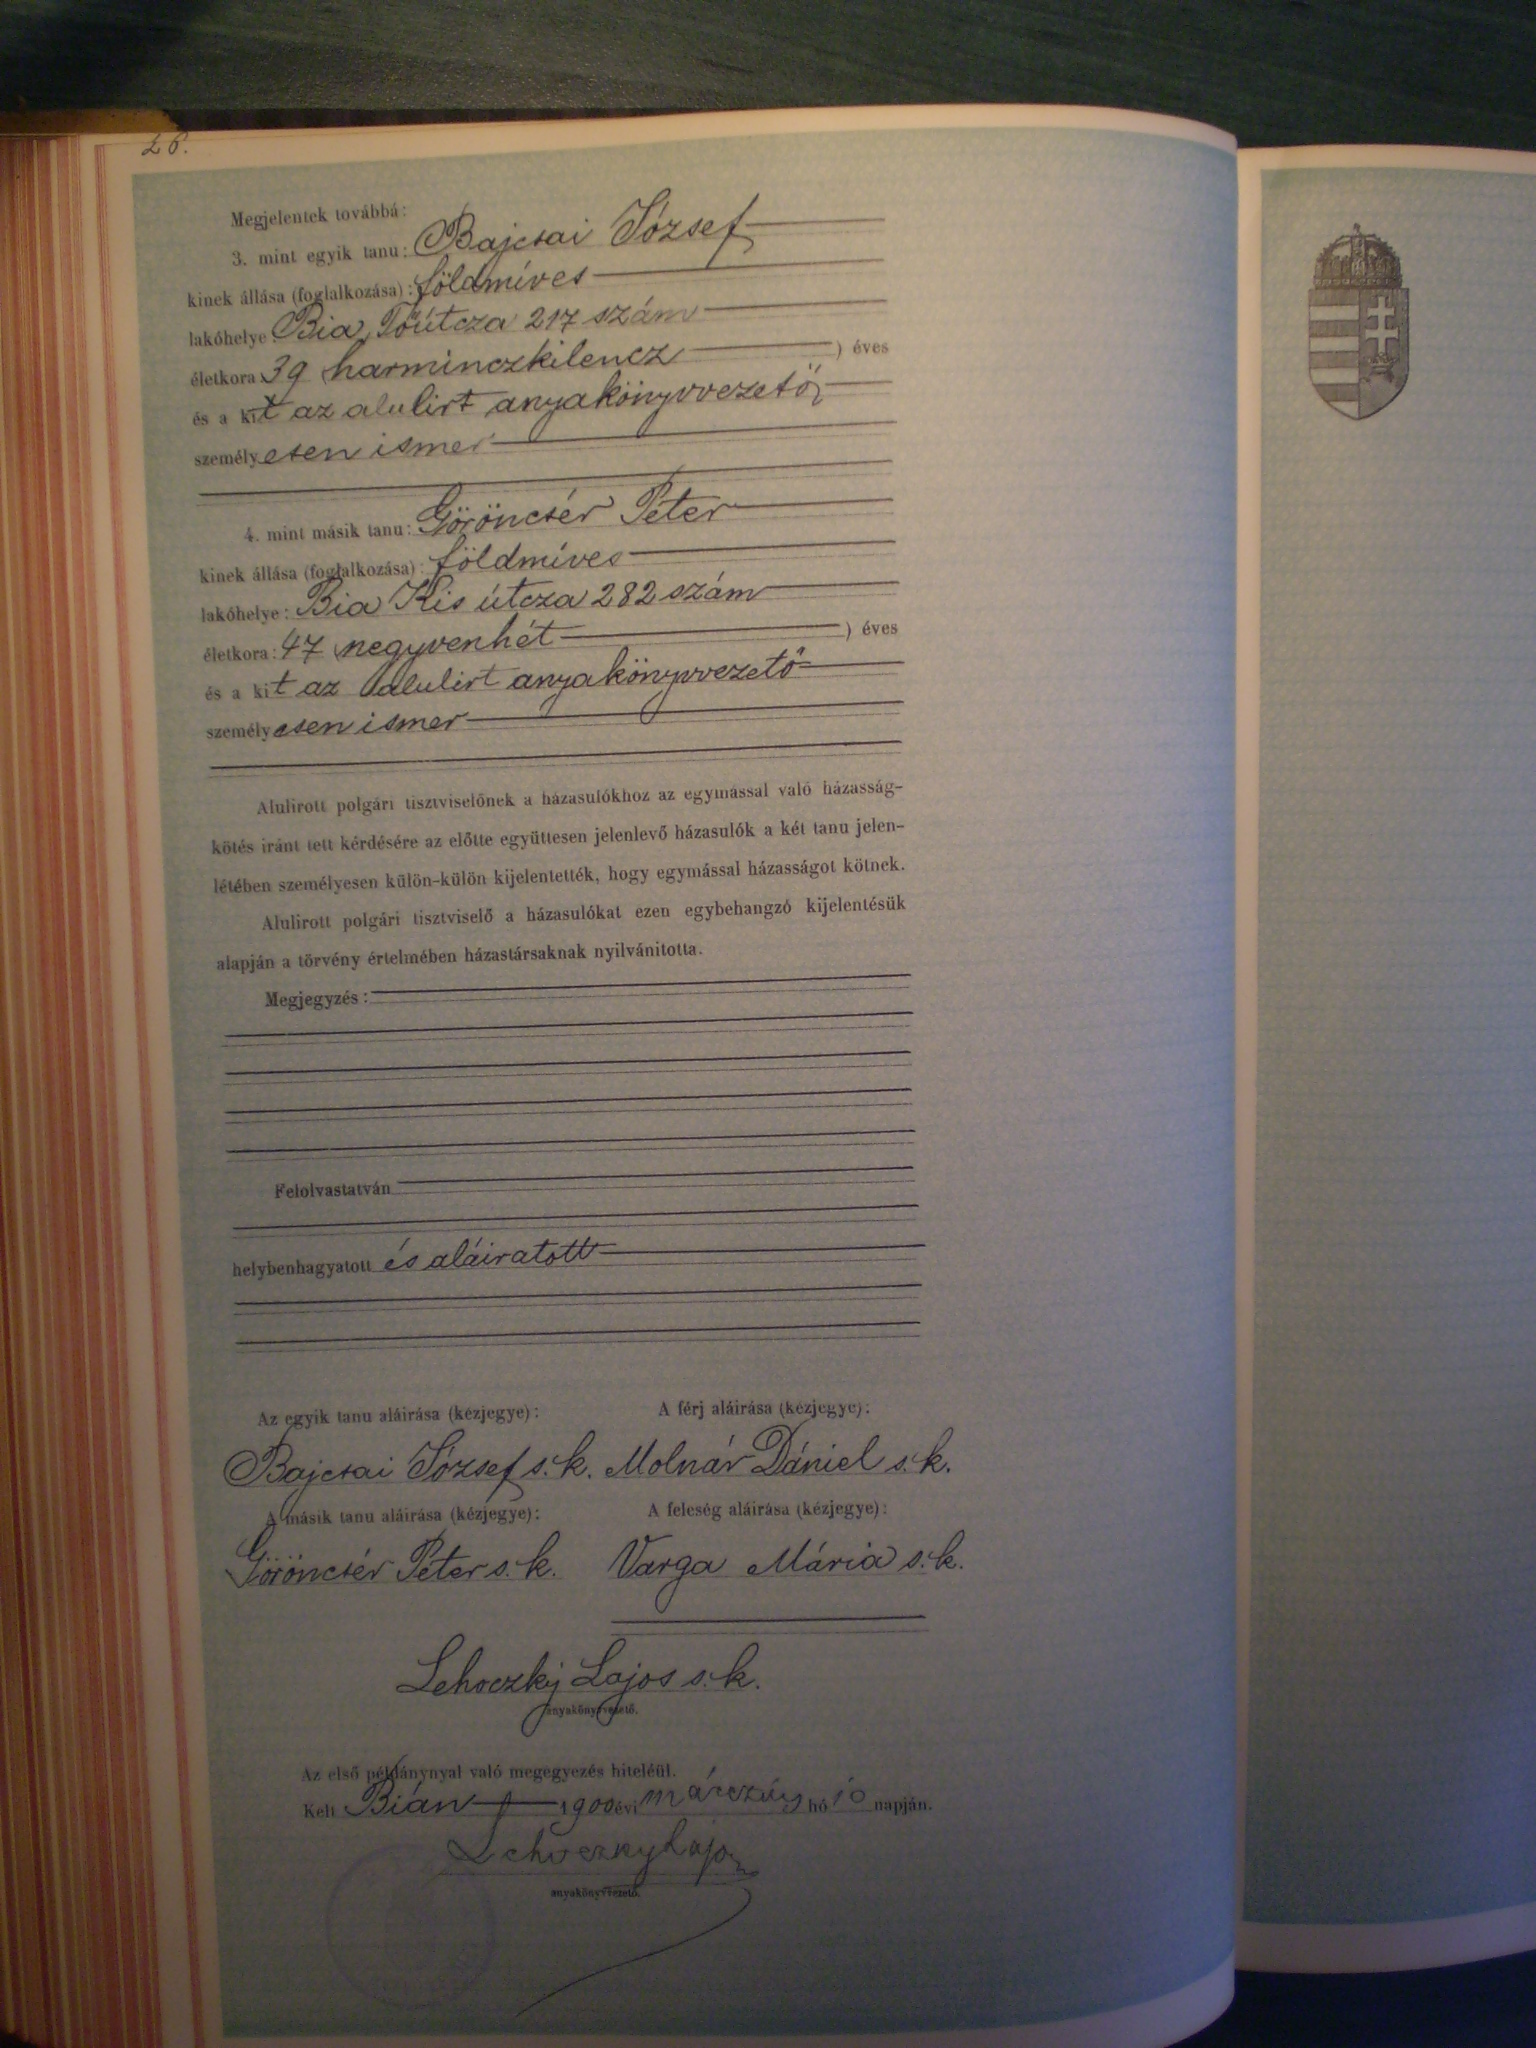 26.
Megjelentek továbbá:
3. mint egyik tanu: Bajcsai József
kinek állása (foglalkozása): földmíves
lakóhelye Bia, Főútcza 217 szám
életkora 39 harminczkilencz ) éves
és a kit az alulirt anyakönyvvezető
személyesen ismer
4. mint másik tanu: Göröncsér Péter
kinek állása (foglalkozása): földmíves
lakóhelye: Bia Kis útcza 282 szám
életkora: 47 negyvenhét ) éves
és a kit az alulirt anyakönyvvezető
személyesen ismer
Alulirott polgári tisztviselőnek a házasulókhoz az egymással való házasság-
kötés iránt tett kérdésére az előtte együttesen jelenlevő házasulók a két tanu jelen-
létében személyesen külön-külön kijelentették, hogy egymással házasságot kötnek.
Alulirott polgári tisztviselő a házasulókat ezen egybehangzó kijelentésük
alapján a törvény értelmében házastársaknak nyilvánitotta.
Megjegyzés:
Felolvastatván
helybenhagyatott és aláiratott
Az egyik tanu aláirása (kézjegye): A férj aláirása (kézjegye):
Bajcsai József s. k. Molnár Dániel s. k.
A másik tanu aláirása (kézjegye): A feleség aláirása (kézjegye):
Göröncsér Péter s. k. Varga Mária s. k.
Lehoczky Lajos s. k.
anyakönyvvezető.
Az első példánynyal való megegyezés hiteléül.
Kelt Bián 1900 évi márczius hó 10 napján.
Lehoczky Lajos
anyakönyvvezető.